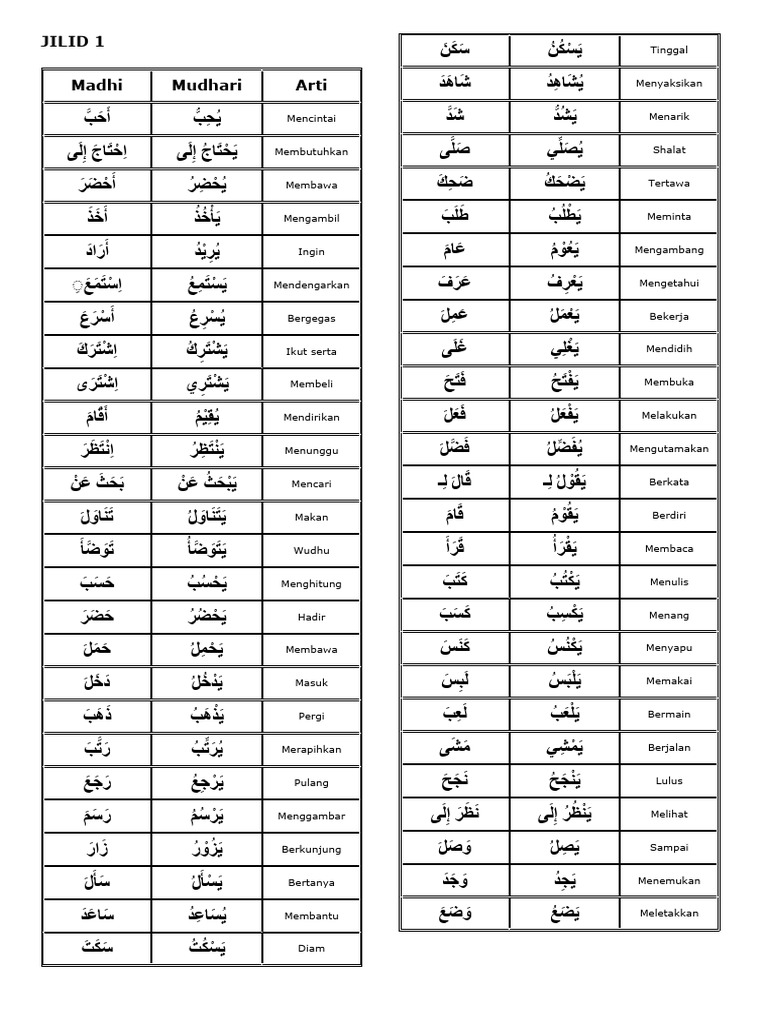 JILID 1
Madhi Mudhari Arti
أَحَبَّ يُحِبُّ Mencintai
اِحْتَاجَ إِلَى يَحْتَاجُ إِلَى Membutuhkan
أَحْضَرَ يُحْضِرُ Membawa
أَخَذَ يَأْخُذُ Mengambil
أَرَادَ يُرِيْدُ Ingin
اِسْتَمَعَِ يَسْتَمِعُ Mendengarkan
أَسْرَعَ يُسْرِعُ Bergegas
اِشْتَرَكَ يَشْتَرِكُ Ikut serta
اِشْتَرَى يَشْتَرِي Membeli
أَقَامَ يُقِيْمُ Mendirikan
اِنْتَظَرَ يَنْتَظِرُ Menunggu
بَحَثَ عَنْ يَبْحَثُ عَنْ Mencari
تَنَاوَلَ يَتَنَاوَلُ Makan
تَوَضَّأَ يَتَوَضَّأُ Wudhu
حَسَبَ يَحْسُبُ Menghitung
حَضَرَ يَحْضُرُ Hadir
حَمَلَ يَحْمِلُ Membawa
دَخَلَ يَدْخُلُ Masuk
ذَهَبَ يَذْهَبُ Pergi
رَتَّبَ يُرَتِّبُ Merapihkan
رَجَعَ يَرْجِعُ Pulang
رَسَمَ يَرْسُمُ Menggambar
زَارَ يَزُوْرُ Berkunjung
سَأَلَ يَسْأَلُ Bertanya
سَاعَدَ يُسَاعِدُ Membantu
سَكَتَ يَسْكُتُ Diam
سَكَنَ يَسْكُنُ Tinggal
شَاهَدَ يُشَاهِدُ Menyaksikan
شَدَّ يَشُدُّ Menarik
صَلَّى يُصَلِّي Shalat
ضَحِكَ يَضْحَكُ Tertawa
طَلَبَ يَطْلُبُ Meminta
عَامَ يَعُوْمُ Mengambang
عَرَفَ يَعْرِفُ Mengetahui
عَمِلَ يَعْمَلُ Bekerja
غَلَى يَغْلِي Mendidih
فَتَحَ يَفْتَحُ Membuka
فَعَلَ يَفْعَلُ Melakukan
فَضَّلَ يُفَضِّلُ Mengutamakan
قَالَ لِـ يَقُوْلُ لِـ Berkata
قَامَ يَقُوْمُ Berdiri
قَرَأَ يَقْرَأُ Membaca
كَتَبَ يَكْتُبُ Menulis
كَسَبَ يَكْسِبُ Menang
كَنَسَ يَكْنُسُ Menyapu
لَبِسَ يَلْبَسُ Memakai
لَعِبَ يَلْعَبُ Bermain
مَشَى يَمْشِي Berjalan
نَجَحَ يَنْجَحُ Lulus
نَظَرَ إِلَى يَنْظُرُ إِلَى Melihat
وَصَلَ يَصِلُ Sampai
وَجَدَ يَجِدُ Menemukan
وَضَعَ يَضَعُ Meletakkan